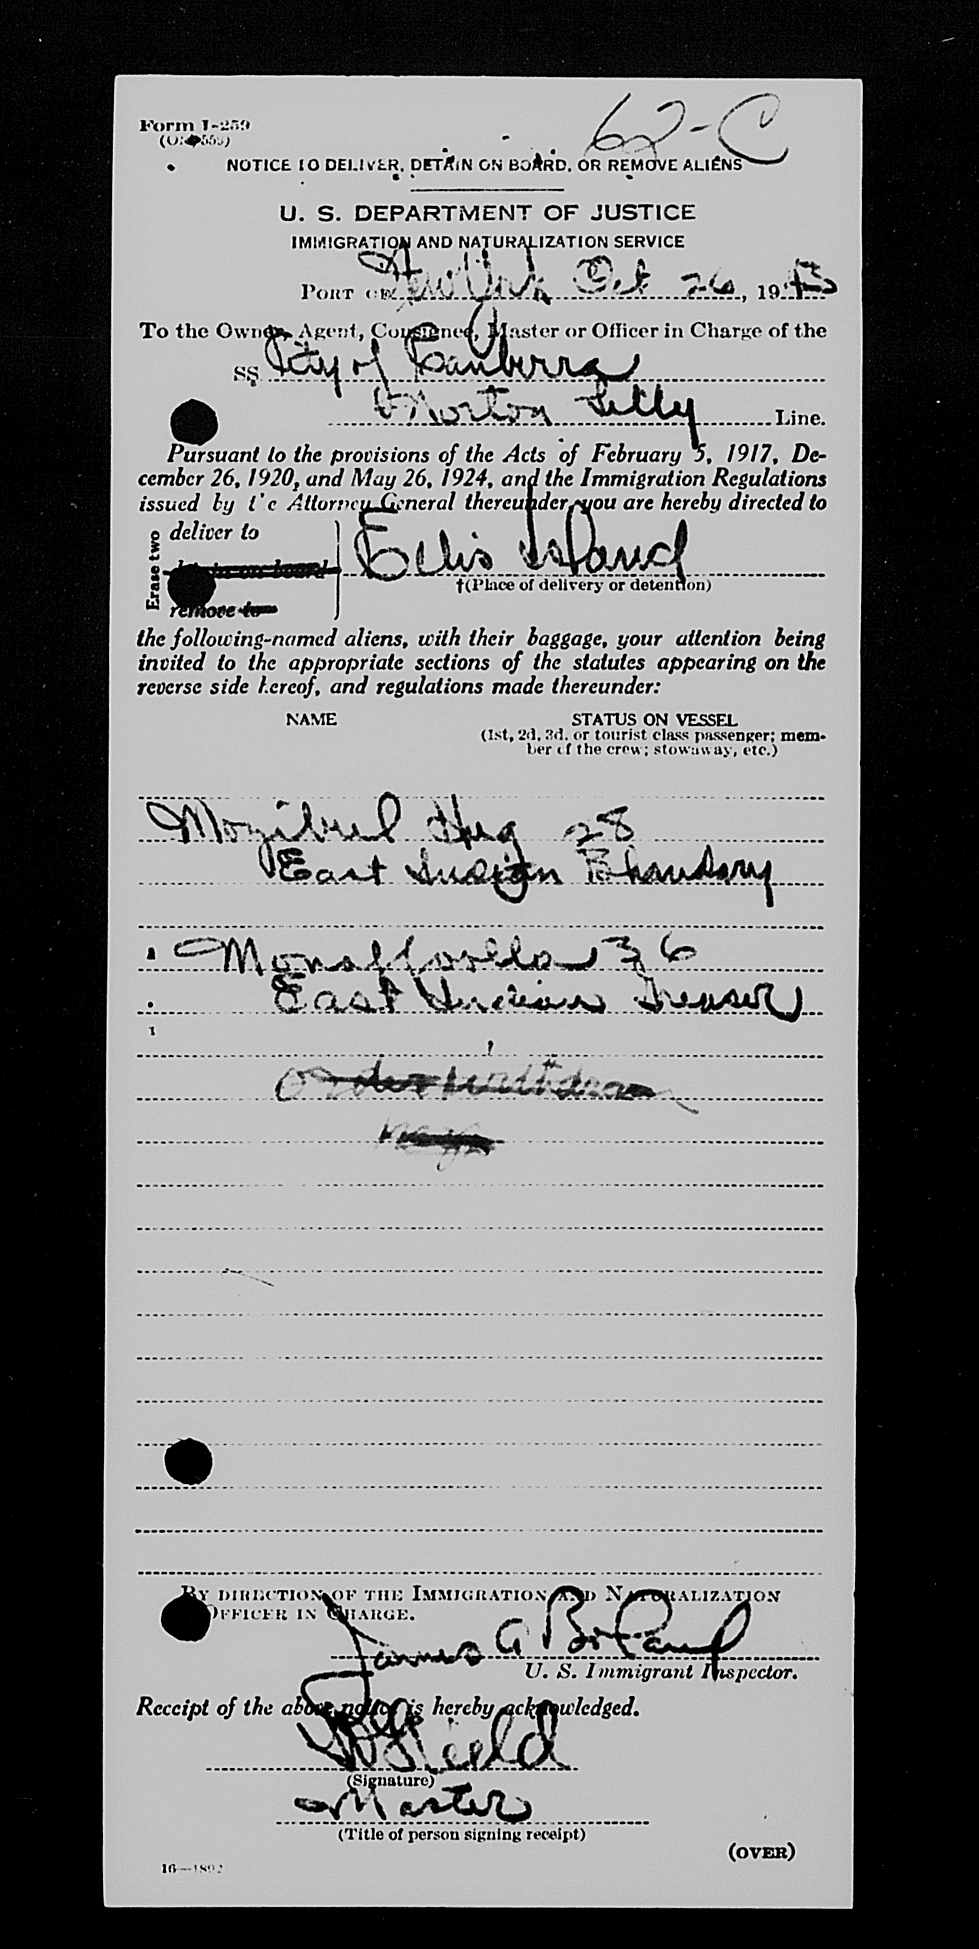 62-C
Form I-259
NOTICE TO DELIVER, DETAIN ON BOARD, OR REMOVE ALIENS
U. S. DEPARTMENT OF JUSTICE
IMMIGRATION AND NATURALIZATION SERVICE
PORT OF New York Oct 26, 1943
To the Owner, Agent, Consignee, Master or Officer in Charge of the
SS City of Canberra
Norton Lilly Line.
Pursuant to the provisions of the Acts of February 5, 1917, De-
cember 26, 1920, and May 26, 1924, and the Immigration Regulations
issued by the Attorney General thereunder you are hereby directed to
Erase two
deliver to
detain on board
remove to
Ellis Island
†(Place of delivery or detention)
the following-named aliens, with their baggage, your attention being
invited to the appropriate sections of the statutes appearing on the
reverse side hereof, and regulations made thereunder:
NAME STATUS ON VESSEL
(1st, 2d, 3d, or tourist class passenger; mem-
ber of the crew; stowaway, etc.)
Mozibul Huq 28
East Indian Bhandary
36
East Indian Greaser
order withdrawn
BY DIRECTION OF THE IMMIGRATION AND NATURALIZATION
OFFICER IN CHARGE.
James A Boland
U. S. Immigrant Inspector.
Receipt of the above notice is hereby acknowledged.
(Signature)
Master
(Title of person signing receipt)
(OVER)